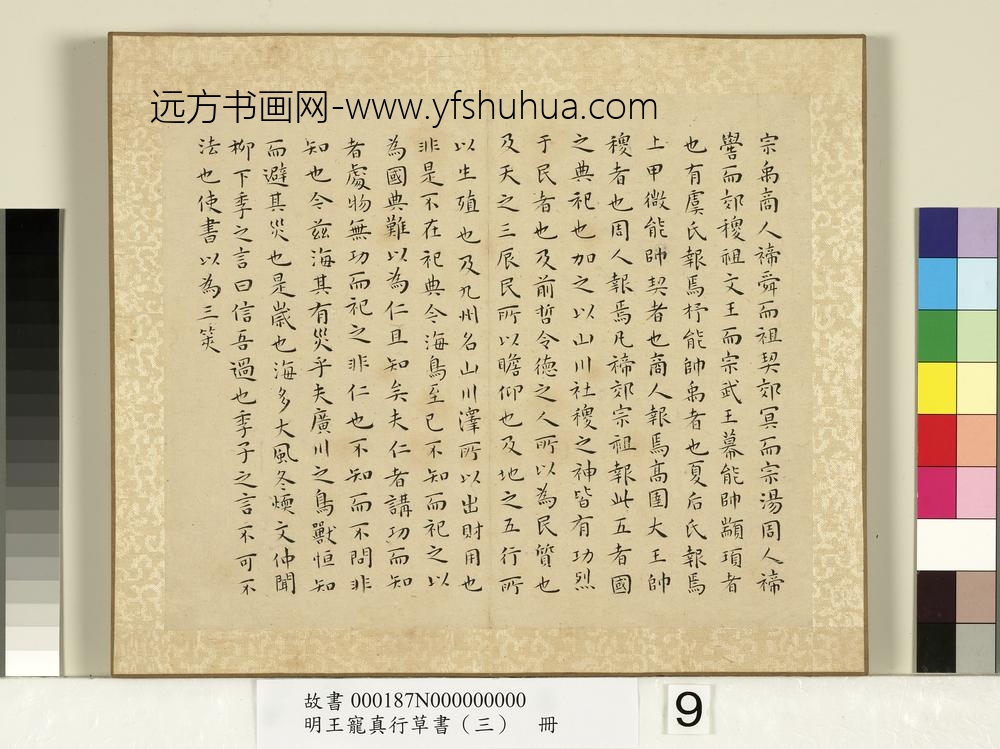 远方书画网-www.yfshuhua.com
宗禹商人禘舜而祖契郊冥而宗湯周人禘
嚳而郊稷祖文王而宗武王幕能帥顓頊者
也有虞氏報焉杼能帥禹者也夏后氏報焉
上甲微能帥契者也商人報焉高圉大王帥
稷者也周人報焉凡禘郊宗祖報此五者國
之典祀也加之以山川社稷之神皆有功烈
于民者也及前哲令德之人所以為民質也
及天之三辰民所以瞻仰也及地之五行所
以生殖也及九州名山川澤所以出財用也
非是不在祀典今海鳥至已不知而祀之以
為國典難以為仁且知矣夫仁者講功而知
者處物無功而祀之非仁也不知而不問非
知也今茲海其有災乎夫廣川之鳥獸恒知
而避其災也是歲也海多大風冬煗文仲聞
柳下季之言曰信吾過也季子之言不可不
法也使書以為三筴
故書 000187N000000000
明王寵真行草書（三） 冊
9